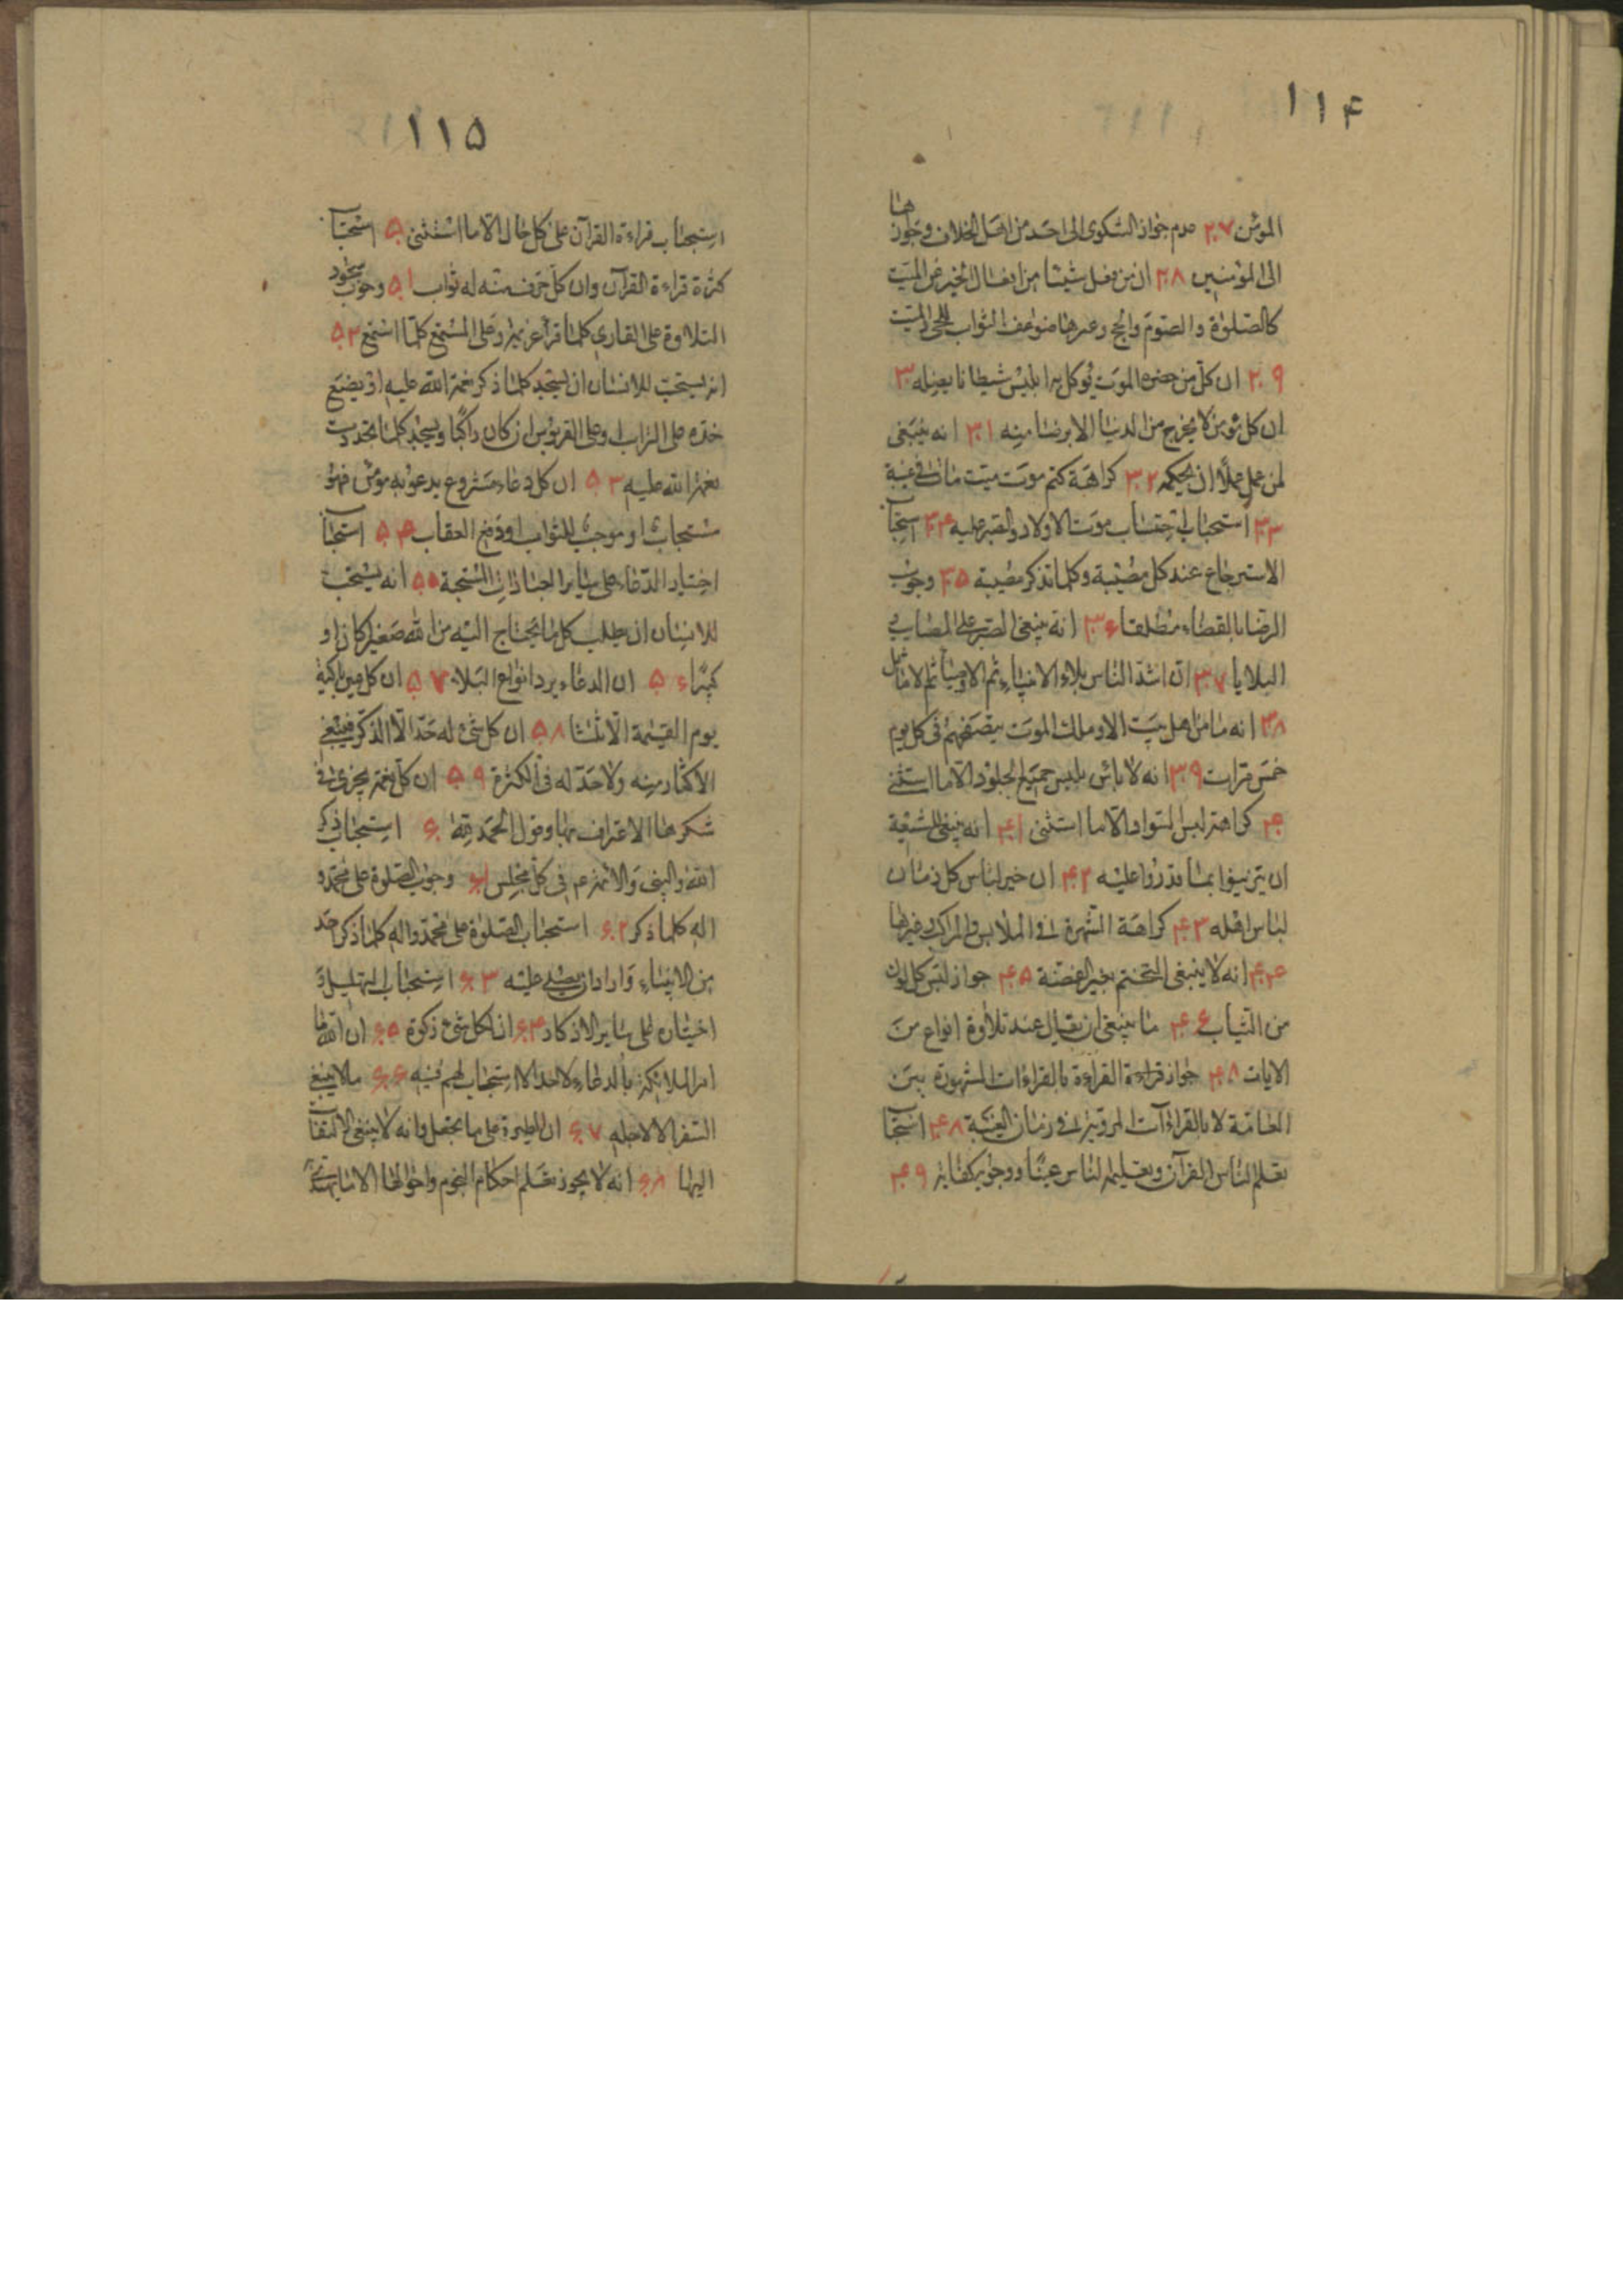 ۱۱۴
المؤمن ۲۷ عدم جواز الشكوى الى احد من اهل الخلاف وجوازها
الى المؤمنين ۲۸ ان من فعل شيئا من افعال الخير عن الميت
كالصلوة والصوم والحج وغيرها ضوعف الثواب للحى والميت
۲۹ ان كل من حضره الموت يوكل به ابليس شيطانا يعزله ۳۰
ان كل مؤمن لا يخرج من الدنيا الا برضا منه ۳۱ انه ينبغى
لمن عمل عملا ان يحكمه ۳۲ كراهة كتم موت ميت مات فى غيبة
۳۳ استحباب احتساب موت الاولاد والصبر عليه ۳۴ استحباب
الاسترجاع عند كل مصيبة وكلما تذكر مصيبة ۳۵ وجوب
الرضا بالقضاء مطلقا ۳۶ انه ينبغى الصبر على المصاب و
البلايا ۳۷ ان اشد الناس بلاء الانبياء ثم الاوصيا ثم الاماثل
۳۸ انه ما من اهل بيت الا وملك الموت يتصفحهم فى كل يوم
خمس مرات ۳۹ انه لا باس بلبس جميع الجلود الا ما استثنى
۴۰ كراهة لبس السواد الا ما استثنى ۴۱ انه ينبغى للشيعة
ان يتزينوا بما قدروا عليه ۴۲ ان خير لباس كل زمان
لباس اهله ۴۳ كراهة الشهرة فى الملابس والمراكب وغيرها
۴۴ انه لا ينبغى التختم بغير الفضة ۴۵ جواز لبس كل لون
من الثياب ۴۶ ما ينبغى ان يقال عند تلاوة انواع من
الايات ۴۸ جواز قراءة القراءة بالقراءات المشهورة بين
العامة لا بالقراءات المروية فى زمان الغيبة ۴۸ استحباب
تعلم الناس القرآن وتعليمه الناس عينا ووجوبه كفاية ۴۹
۱۱۵
استحباب قراءة القرآن على كل حال الا ما استثنى ۵۰ استحباب
كثرة قراءة القرآن وان كل حرف منه له ثواب ۵۱ وجوب سجود
التلاوة على القارى كلما قرأ عزيمة وعلى المستمع كلما استمع ۵۲
انه يستحب للانسان ان يسجد كلما ذكر نعمة الله عليه او يضع
خده على التراب او على القربوس ان كان راكبا ويسجد كلما تجددت
نعمة الله عليه ۵۳ ان كل دعاء مشروع يدعو به مؤمن فهو
مستجاب او موجب للثواب او دفع العقاب ۵۴ استحباب
اختيار الدعاء على ساير العبادات المستحبة ۵۵ انه يستحب
للانسان ان يطلب كل ما يحتاج اليه من الله صغيرا كان او
كبيرا ۵۶ ان الدعاء يرد انواع البلاء ۵۷ ان كل عين باكية
يوم القيمة الا ثلثا ۵۸ ان كل شىء له حد الا الذكر فينبغى
الاكثار منه ولا حد له فى الكثرة ۵۹ ان كل نعمة يجزى فى
شكرها الاعتراف بها وقول الحمد لله ۶۰ استحباب ذكر
الله والنبى والائمة ع فى كل مجلس ۶۱ وجوب الصلوة على محمد و
اله كلما ذكر ۶۲ استحباب الصلوة على محمد واله كلما ذكر احد
من الانبياء واراد ان يصلى عليه ۶۳ استحباب التهليل و
اختياره على ساير الاذكار ۶۴ ان لكل شىء زكوة ۶۵ ان الله ما
امر الملائكة بالدعاء لاحد الا استجاب لهم فيه ۶۶ ما لا ينبغى
السفر الا لاجله ۶۷ ان الطيرة على ما تجعل وانه لا ينبغى الالتفات
اليها ۶۸ انه لا يجوز تعلم احكام النجوم واحوالها الا ما يهتدى